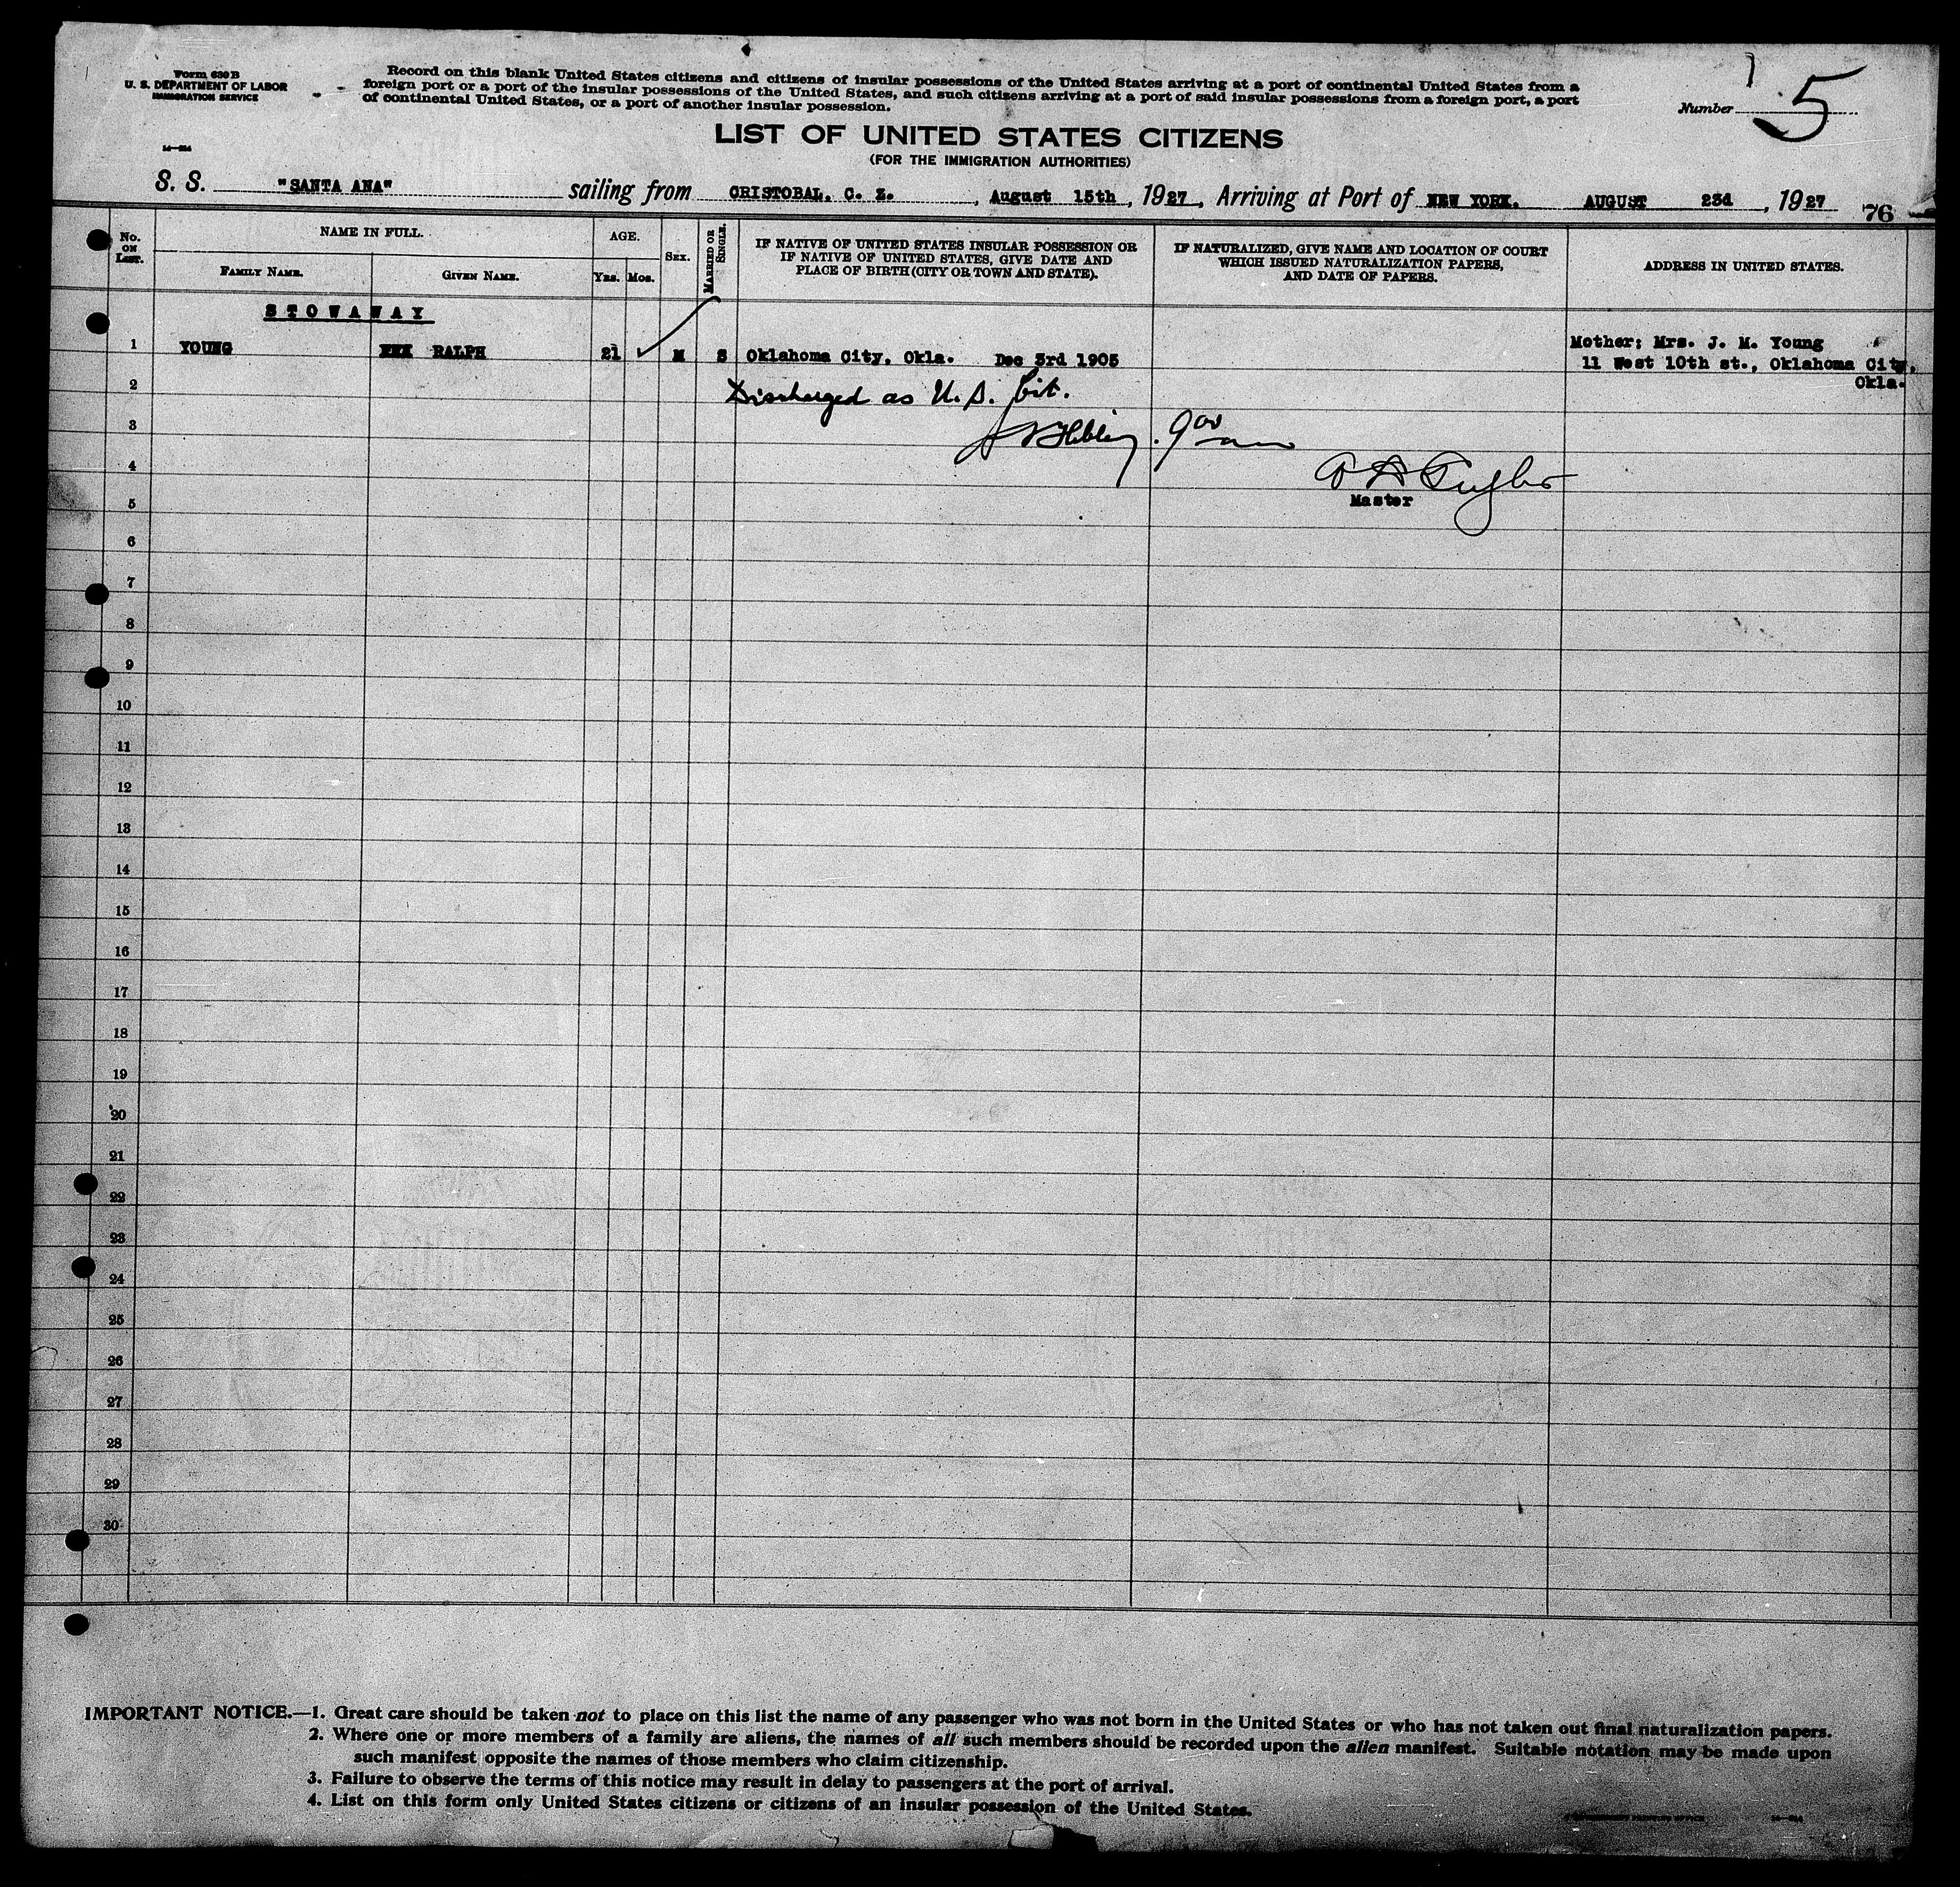 Form 630 B
U. S. DEPARTMENT OF LABOR
IMMIGRATION SERVICE
Record on this blank United States citizens and citizens of insular possessions of the United States arriving at a port of continental United States from a
foreign port or a port of the insular possessions of the United States, and such citizens arriving at a port of said insular possessions from a foreign port, a port
of continental United States, or a port of another insular possession.
Number 5
LIST OF UNITED STATES CITIZENS
(FOR THE IMMIGRATION AUTHORITIES)
S. S. "SANTA ANA" sailing from CRISTOBAL, C. Z. , August 15th , 1927 , Arriving at Port of NEW YORK. AUGUST 23d , 1927
76
No. ON LIST.
NAME IN FULL.
FAMILY NAME.
GIVEN NAME.
AGE.
YRS. MOS.
SEX.
MARRIED OR SINGLE.
IF NATIVE OF UNITED STATES INSULAR POSSESSION OR
IF NATIVE OF UNITED STATES, GIVE DATE AND
PLACE OF BIRTH (CITY OR TOWN AND STATE).
IF NATURALIZED, GIVE NAME AND LOCATION OF COURT
WHICH ISSUED NATURALIZATION PAPERS,
AND DATE OF PAPERS.
ADDRESS IN UNITED STATES.
STOWAWAY
1 YOUNG RALPH 21 ✓ M S Oklahoma City, Okla. Dec 3rd 1905
Mother; Mrs. J. M. Young
11 West 10th st., Oklahoma City,
Okla.
2
Discharged as U.S. Cit.
3
9 00 am
4
Master
5
6
7
8
9
10
11
12
13
14
15
16
17
18
19
20
21
22
23
24
25
26
27
28
29
30
IMPORTANT NOTICE.—1. Great care should be taken not to place on this list the name of any passenger who was not born in the United States or who has not taken out final naturalization papers.
2. Where one or more members of a family are aliens, the names of all such members should be recorded upon the alien manifest. Suitable notation may be made upon
such manifest opposite the names of those members who claim citizenship.
3. Failure to observe the terms of this notice may result in delay to passengers at the port of arrival.
4. List on this form only United States citizens or citizens of an insular possession of the United States.